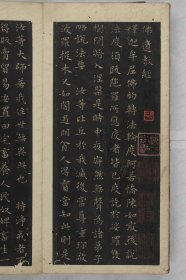 佛遺教經
釋迦牟尼佛初轉法輪度阿若憍陳如最後說
法度須跋陀羅所應度者皆已度訖於娑羅
樹間將入涅槃是時中夜寂然無聲為諸弟子
略說法要汝等比丘於我滅後當尊重珍敬
波羅提木叉如闇遇明貧人得寶當知此則是
汝等大師若我住世無異此也 持淨戒者
得販賣貿易安置田宅畜養人民奴婢